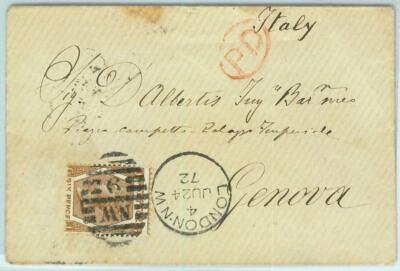 Italy
PD
Sig. D'Albertis Ing Barmeo
Piazza Campetto Palazzo Imperiale
Genova
SIX PENCE
NW
LONDON·N.W
4
JU 24
72